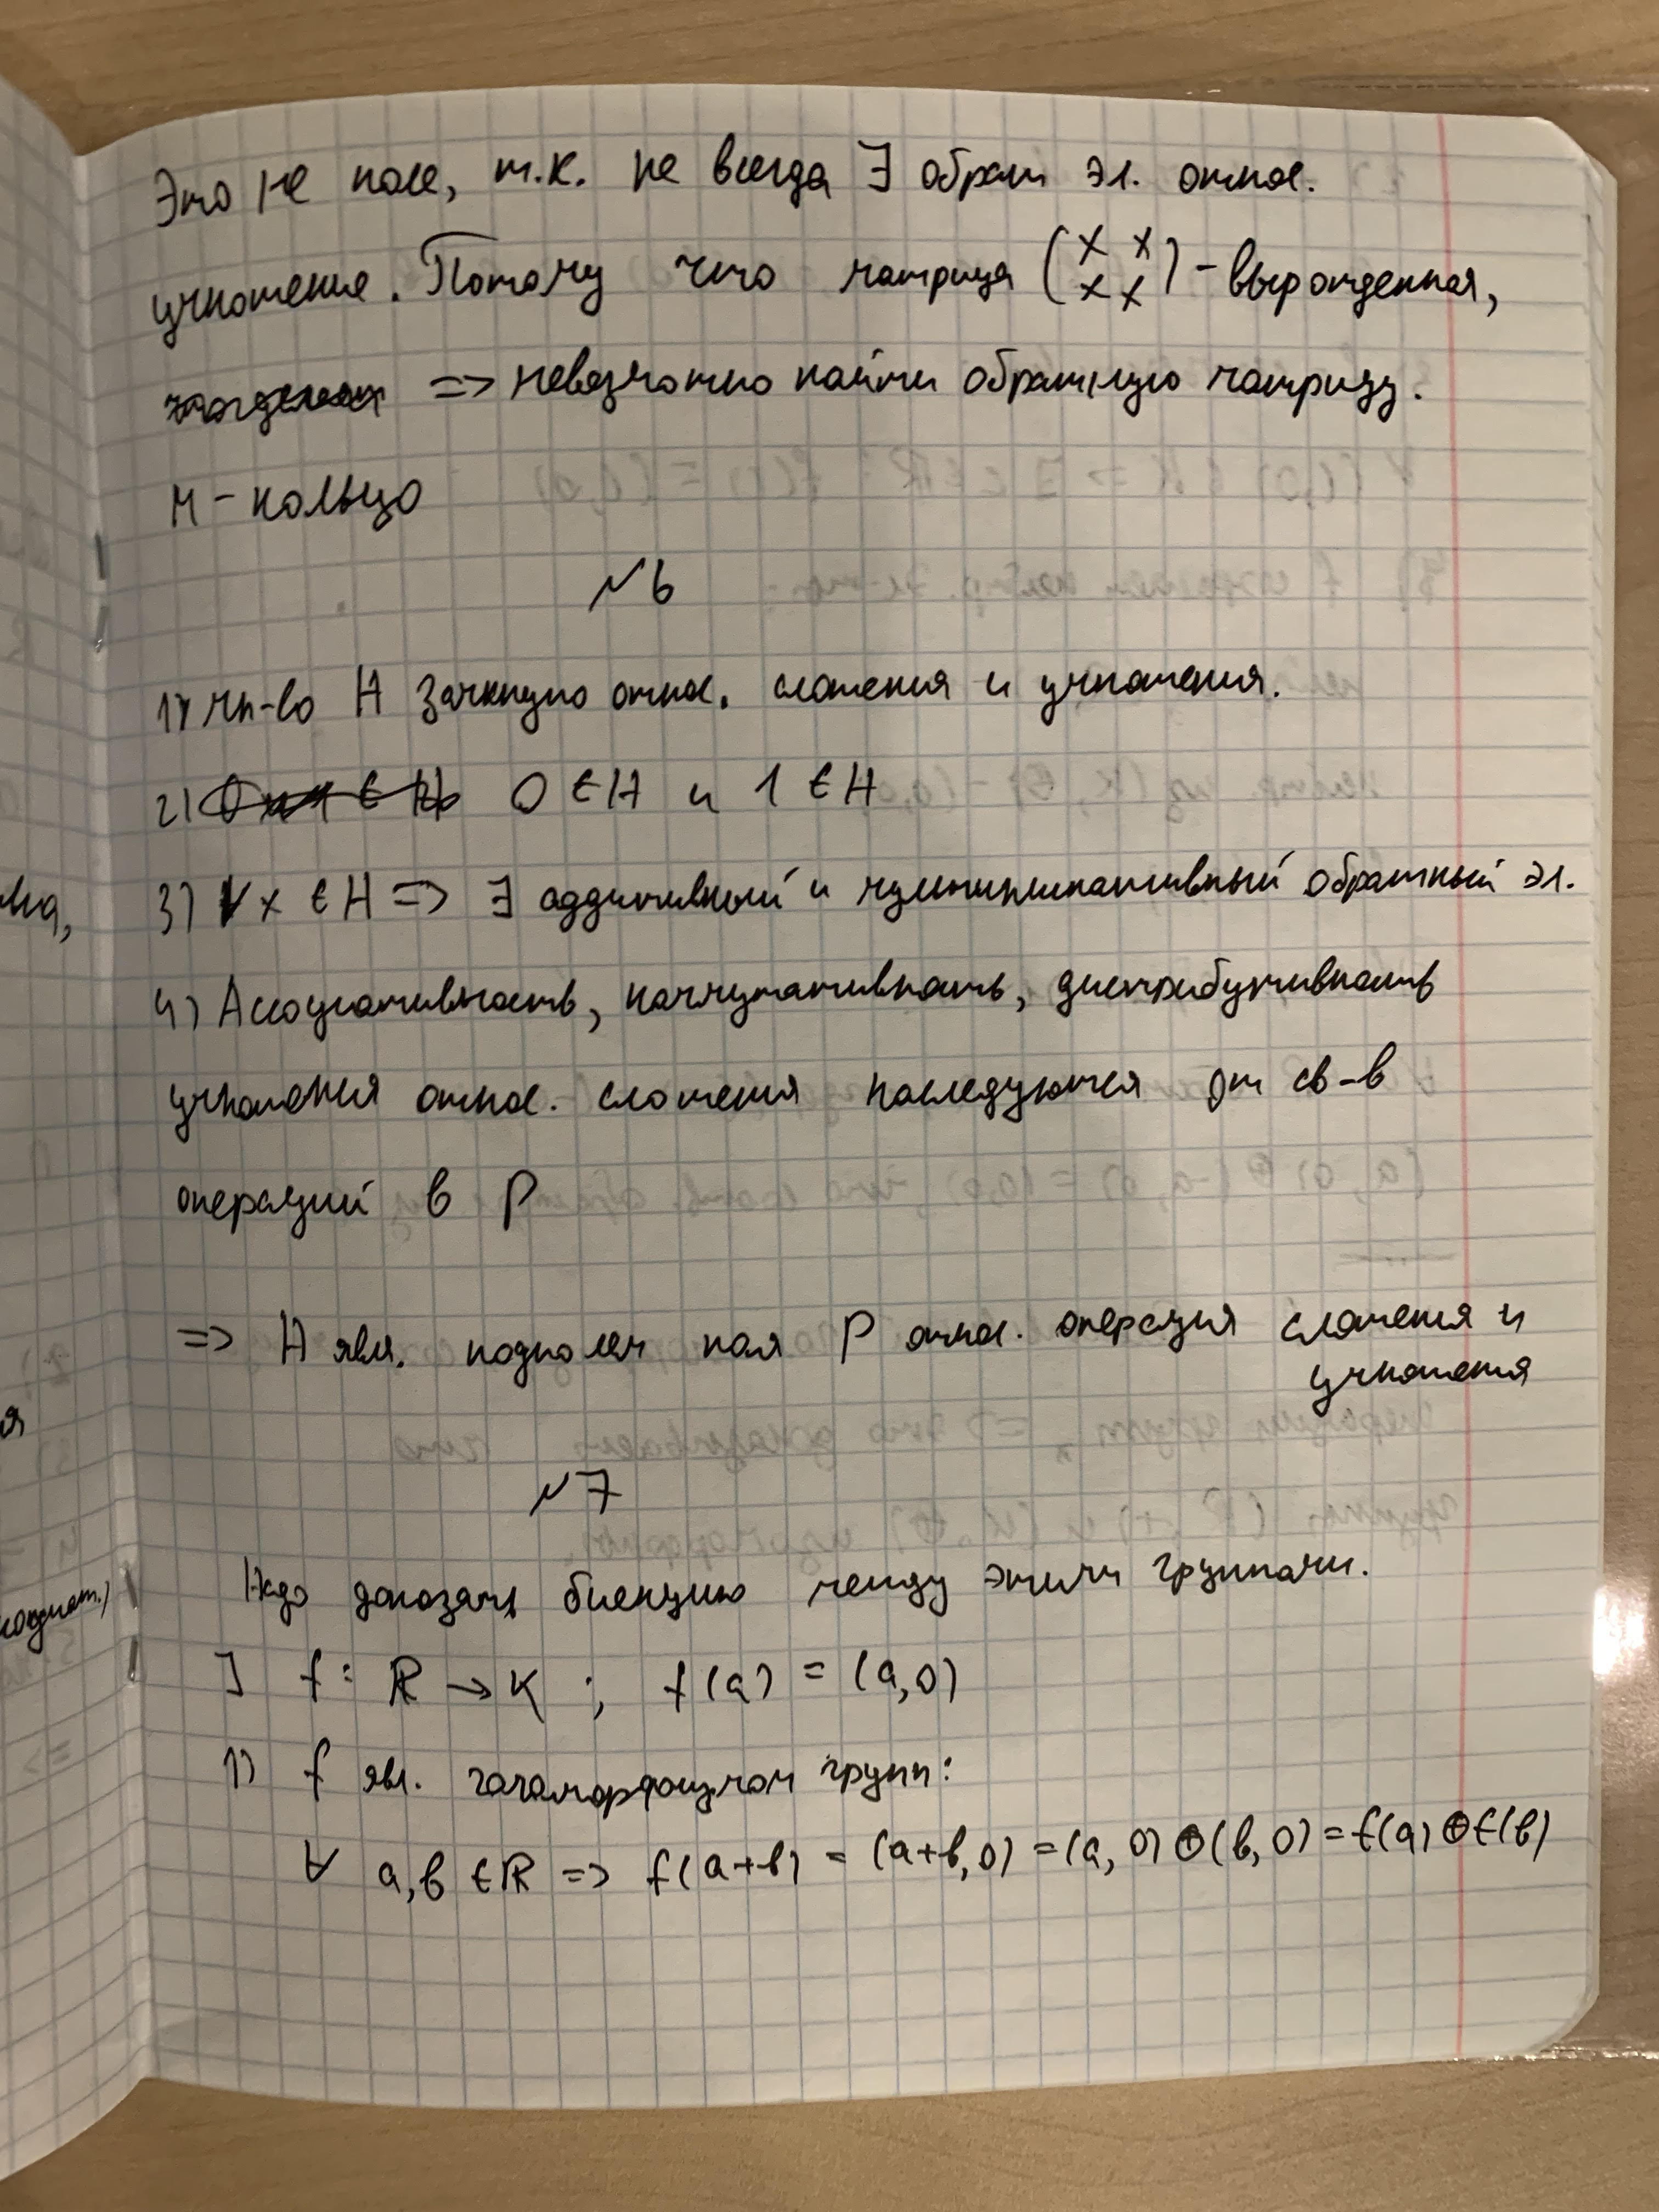 Это не поле, т.к. не всегда ∃ обрат эл. относ.
умножение. Потому что матрица (x x x x) - вырожденная,
=> невозможно найти обратную матрицу.
М - кольцо
№6
1) мн-во H замкнуто относ. сложения и умножения.
2) 0 ∈ H и 1 ∈ H
3) ∀ x ∈ H => ∃ аддитивный и мультипликативный обратный эл.
4) Ассоциативность, коммутативность, дистрибутивность
умножения относ. сложения последуются от св-в
операций в P
=> H явл. подполем поля P относ. операция сложения и
умножения
№7
Надо доказать биекцию между этими группами.
∃ f: ℝ → K ; f(a) = (a,0)
1) f явл. гомоморфизмом групп:
∀ a,b ∈ ℝ => f(a+b) = (a+b,0) = (a,0) ⊕ (b,0) = f(a) ⊕ f(b)